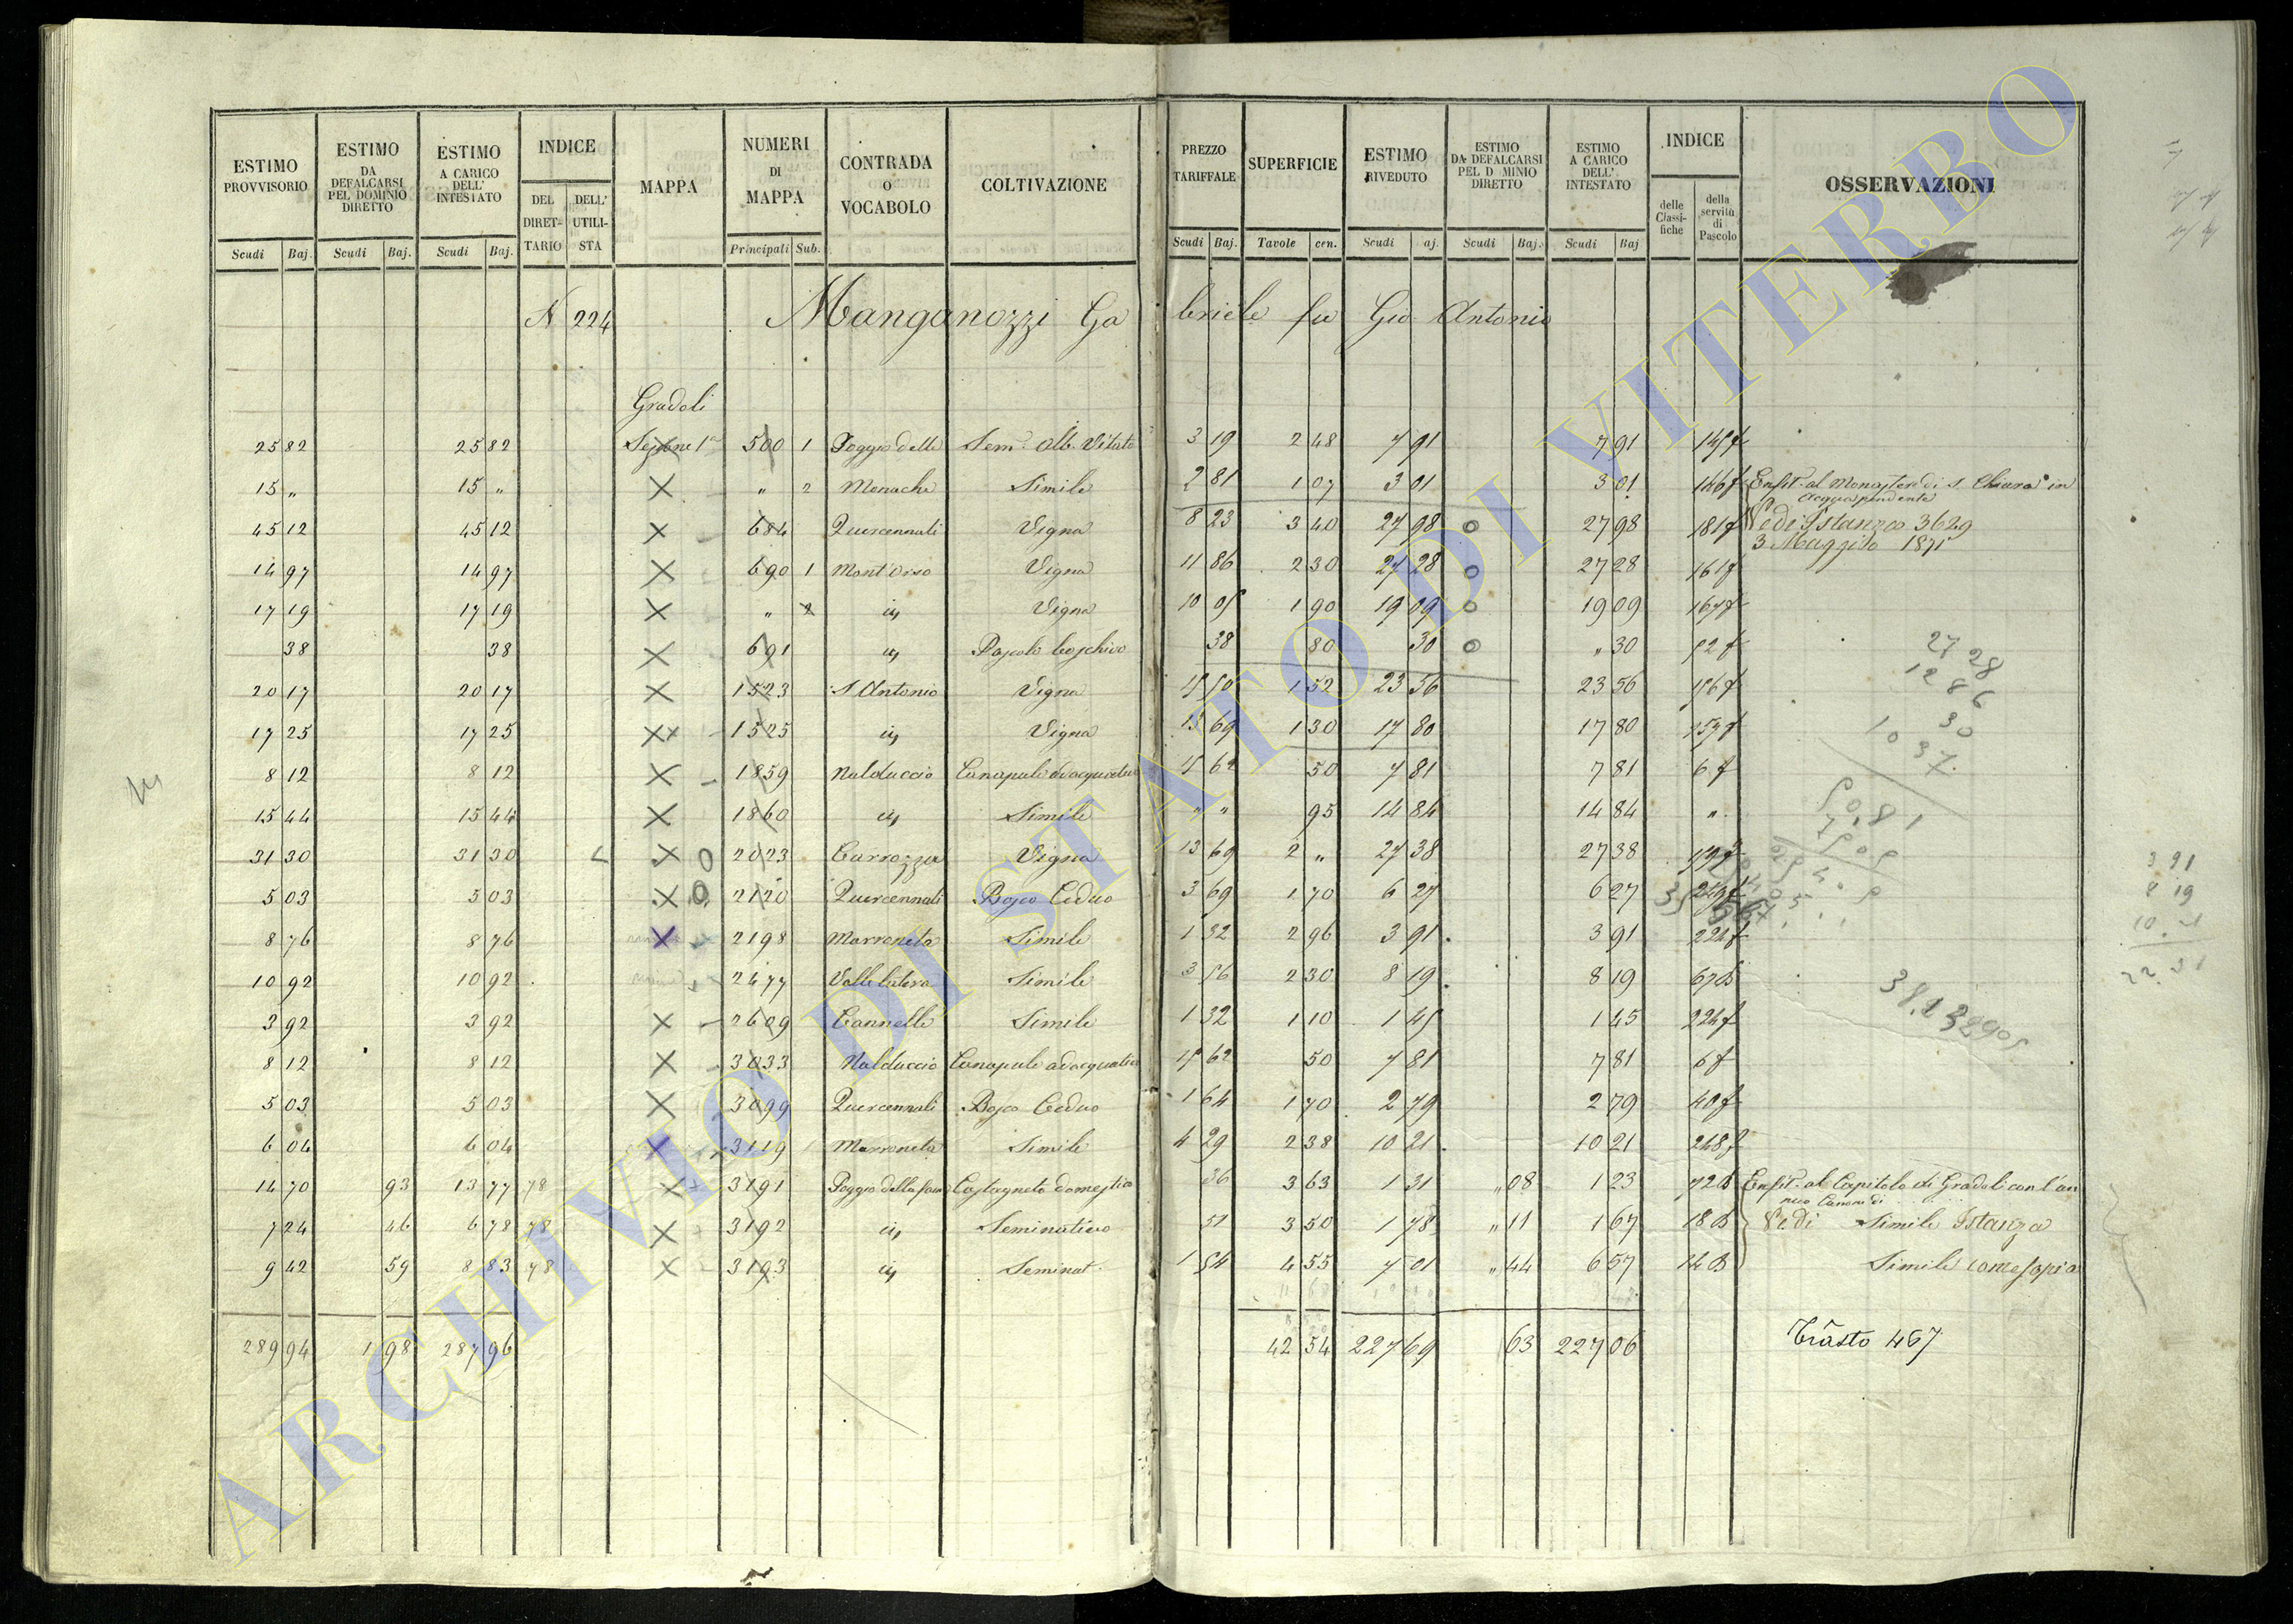 ESTIMO PROVVISORIO | ESTIMO DA DEFALCARSI PEL DOMINIO DIRETTO | ESTIMO A CARICO DELL' INTESTATO | INDICE DEL DIRETTARIO | DELL' UTILISTA | MAPPA | NUMERI DI MAPPA | CONTRADA O VOCABOLO | COLTIVAZIONE | PREZZO TARIFFALE | SUPERFICIE | ESTIMO RIVEDUTO | ESTIMO DA DEFALCARSI PEL D MINIO DIRETTO | ESTIMO A CARICO DELL' INTESTATO | INDICE delle Classifiche | della servitù di Pascolo | OSSERVAZIONI
Scudi Baj. | Scudi Baj. | Scudi Baj. | Principali Sub. | Scudi Baj. | Tavole cen. | Scudi aj. | Scudi Baj. | Scudi Baj
N 224 Manganozzi Gabriele fu Gio Antonio
Gradoli
25 82 | 25 82 | Sezione 1a | 500 1 | Poggio delle | Sem. Alb. Vitato | 3 19 | 2 48 | 7 91 | 7 91
15 " | 15 " | " 2 | Monache | Simile | 2 81 | 1 07 | 3 01 | 3 01 | 146 f | Enfit. al Monastero di S. Chiara in Acquapendente
45 12 | 45 12 | 684 | Quercennali | Vigna | 8 23 | 3 40 | 27 98 | 27 98 | 181 f | Vedi Istanza 3629
3 Maggio 1871
14 97 | 14 97 | 690 1 | Mont'Orso | Vigna | 11 86 | 2 30 | 27 28 | 27 28 | 161 f
17 19 | 17 19 | " 2 | id | Vigna | 10 05 | 1 90 | 19 09 | 19 09 | 167 f
38 | 38 | 691 | id | Pascolo boschivo | 38 | 80 | 30 | " 30 | 52 f
20 17 | 20 17 | 1523 | S Antonio | Vigna | 15 50 | 1 52 | 23 56 | 23 56 | 156 f
17 25 | 17 25 | 1525 | id | Vigna | 13 69 | 1 30 | 17 80 | 17 80 | 159 f
8 12 | 8 12 | 1859 | Nalduccio | Canapule adacquativo | 15 62 | 50 | 7 81 | 7 81 | 6 f
15 44 | 15 44 | 1860 | id | Simile | " " | 95 | 14 84 | 14 84 | "
31 30 | 31 30 | 2023 | Carrozza | Vigna | 13 69 | 2 " | 27 38 | 27 38 | 159 f
5 03 | 5 03 | 2120 | Quercennali | Bosco Ceduo | 3 69 | 1 70 | 6 27 | 6 27 | 249 f
8 76 | 8 76 | 2198 | Marroneta | Simile | 1 32 | 2 96 | 3 91 | 3 91 | 224 f
10 92 | 10 92 | 2477 | Valle latera | Simile | 3 56 | 2 30 | 8 19 | 8 19
3 92 | 3 92 | 2609 | Cannelle | Simile | 1 32 | 1 10 | 1 45 | 1 45 | 224 f
8 12 | 8 12 | 3033 | Nalduccio | Canapule adacquativo | 15 62 | 50 | 7 81 | 7 81 | 6 f
5 03 | 5 03 | 3099 | Quercennali | Bosco Ceduo | 1 64 | 1 70 | 2 79 | 2 79 | 40 f
6 04 | 6 04 | 3119 | Marroneta | Simile | 4 29 | 2 38 | 10 21 | 10 21 | 248 f
14 70 | 93 | 13 77 | 78 | 3191 | Poggio della | Castagneto domestico | 36 | 3 63 | 1 31 | " 08 | 1 23 | Enfit. al Capitolo di Gradoli con l'annuo Canone di
7 24 | 46 | 6 78 | 78 | 3192 | id | Seminativo | 51 | 3 50 | 1 78 | " 11 | 1 67 | Vedi Simile Istanza
9 42 | 59 | 8 83 | 78 | 3193 | id | Seminat. | 1 54 | 4 55 | 7 01 | " 44 | 6 57 | Simile come sopra
289 94 | 1 98 | 287 96 | 42 54 | 227 69 | 63 | 227 06 | Trasto 467
27 28
12 86
30
10 37
50,81
38.1
3 91
8 19
10 21
22 31
ARCHIVIO DI STATO DI VITERBO